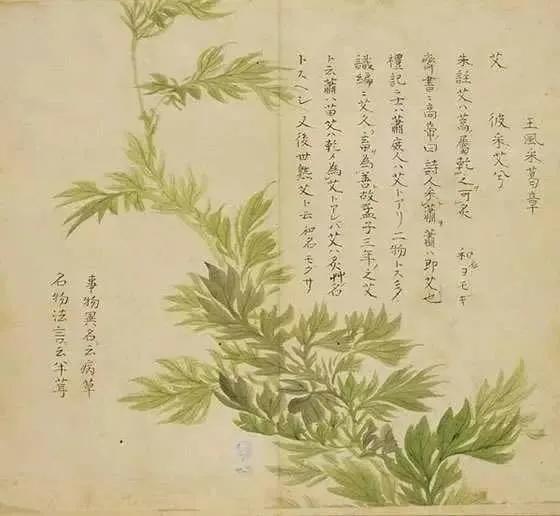 王風采葛章
艾 彼采艾兮
朱註艾ハ蒿屬乾之可灸 和名ヨモギ
齊書ニ高帝曰詩人采蕭蕭ハ即艾也
禮記ニ士ハ蕭庶人ハ艾トアリ二物トス
識編ニ艾久畜為善故孟子三年之艾
ト云蕭ハ苗艾ハ乾為艾トアレバ艾ハ灸艸名
トスヘシ又後世熟艾ト云和名モグサ
事物異名ニ云病草
名物法言云半茸